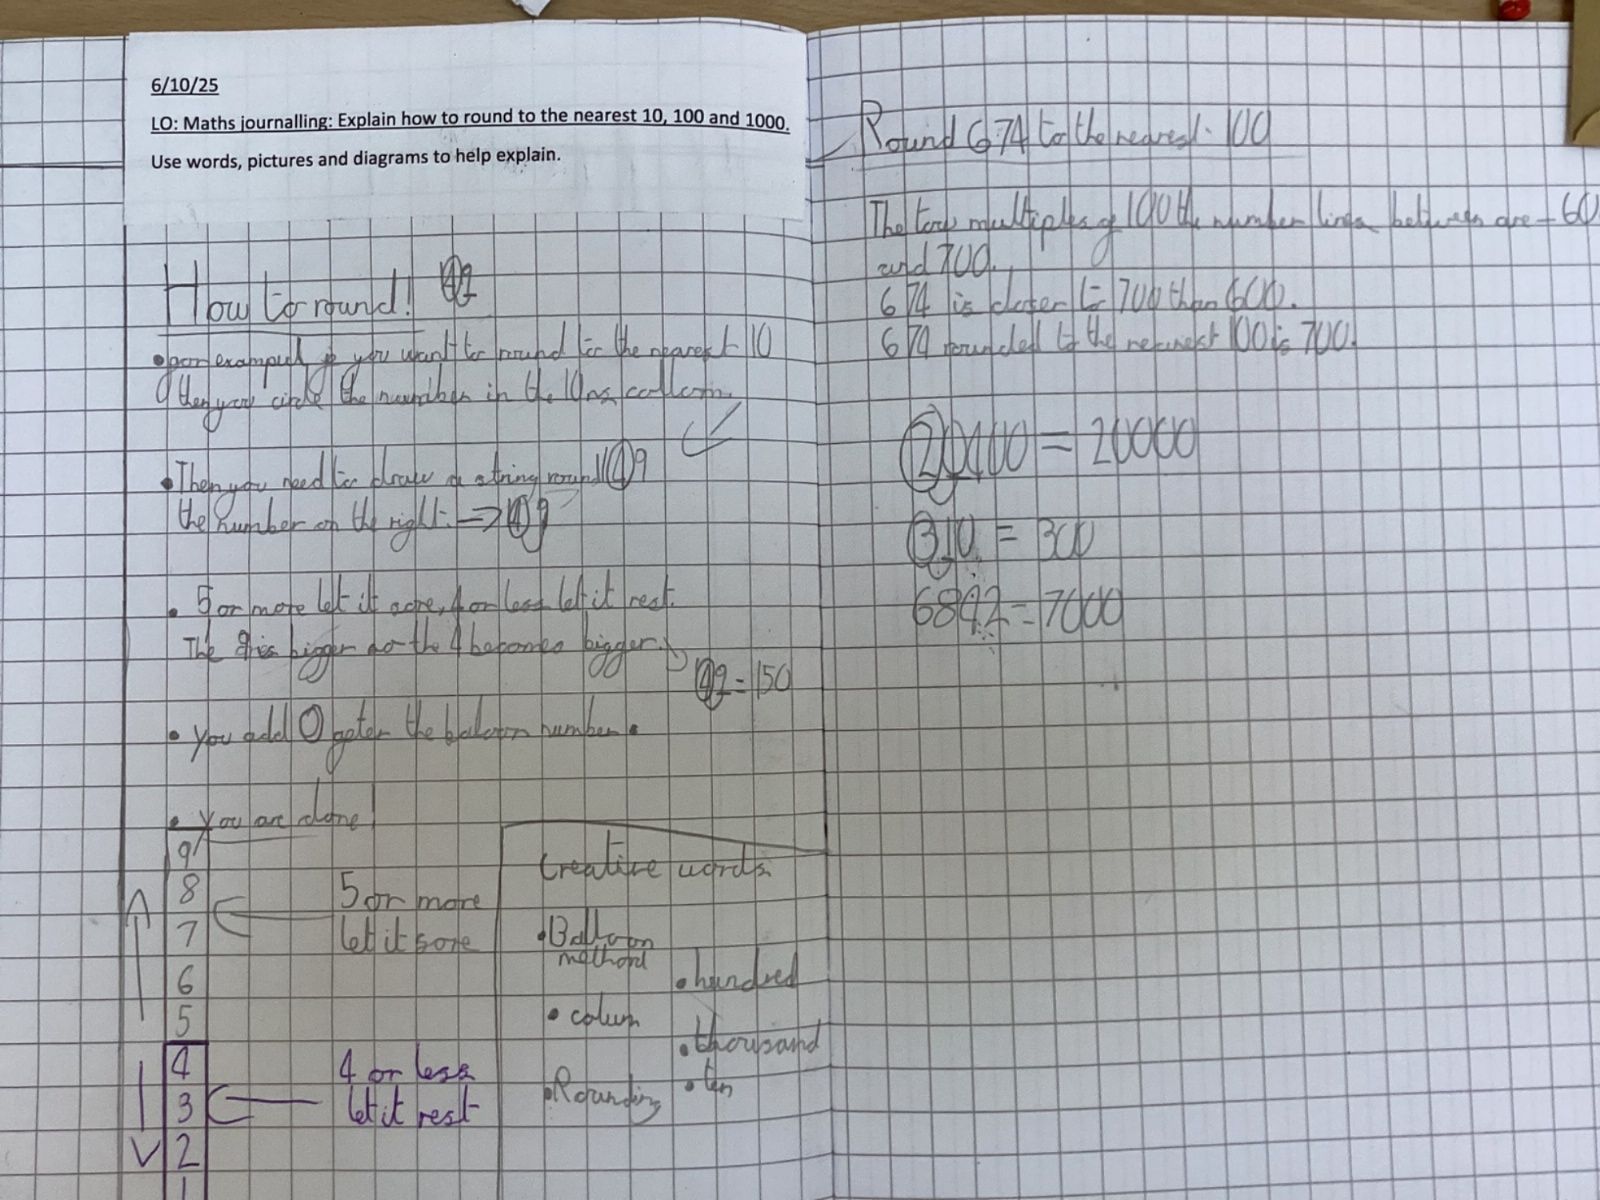 6/10/25
LO: Maths journalling: Explain how to round to the nearest 10, 100 and 1000.
Use words, pictures and diagrams to help explain.
How to round!
• for exampul if you want to round to the nearest 10
then you circle the number in the 10ns collom.
• Then you need to draw a string round 149
the number on the right. → 149
• 5 or more let it sore, 4 or less let it rest.
The 9 is bigger so the 4 becomes bigger.
149 = 150
• you add 0 after the baloon number.
• You are done!
9
8
7
6
5
4
3
2
1
5 or more
let it sore
4 or less
let it rest
Creative words
• Balloon
method
• colum
• Rounding
• hundred
• thousand
• ten
Round 674 to the nearest 100
The tow multiples of 100 the number between are – 60
and 700.
674 is closer to 700 than 600.
674 rounded to the nearest 100 is 700.
20400 = 20000
310 = 300
6842 = 7000